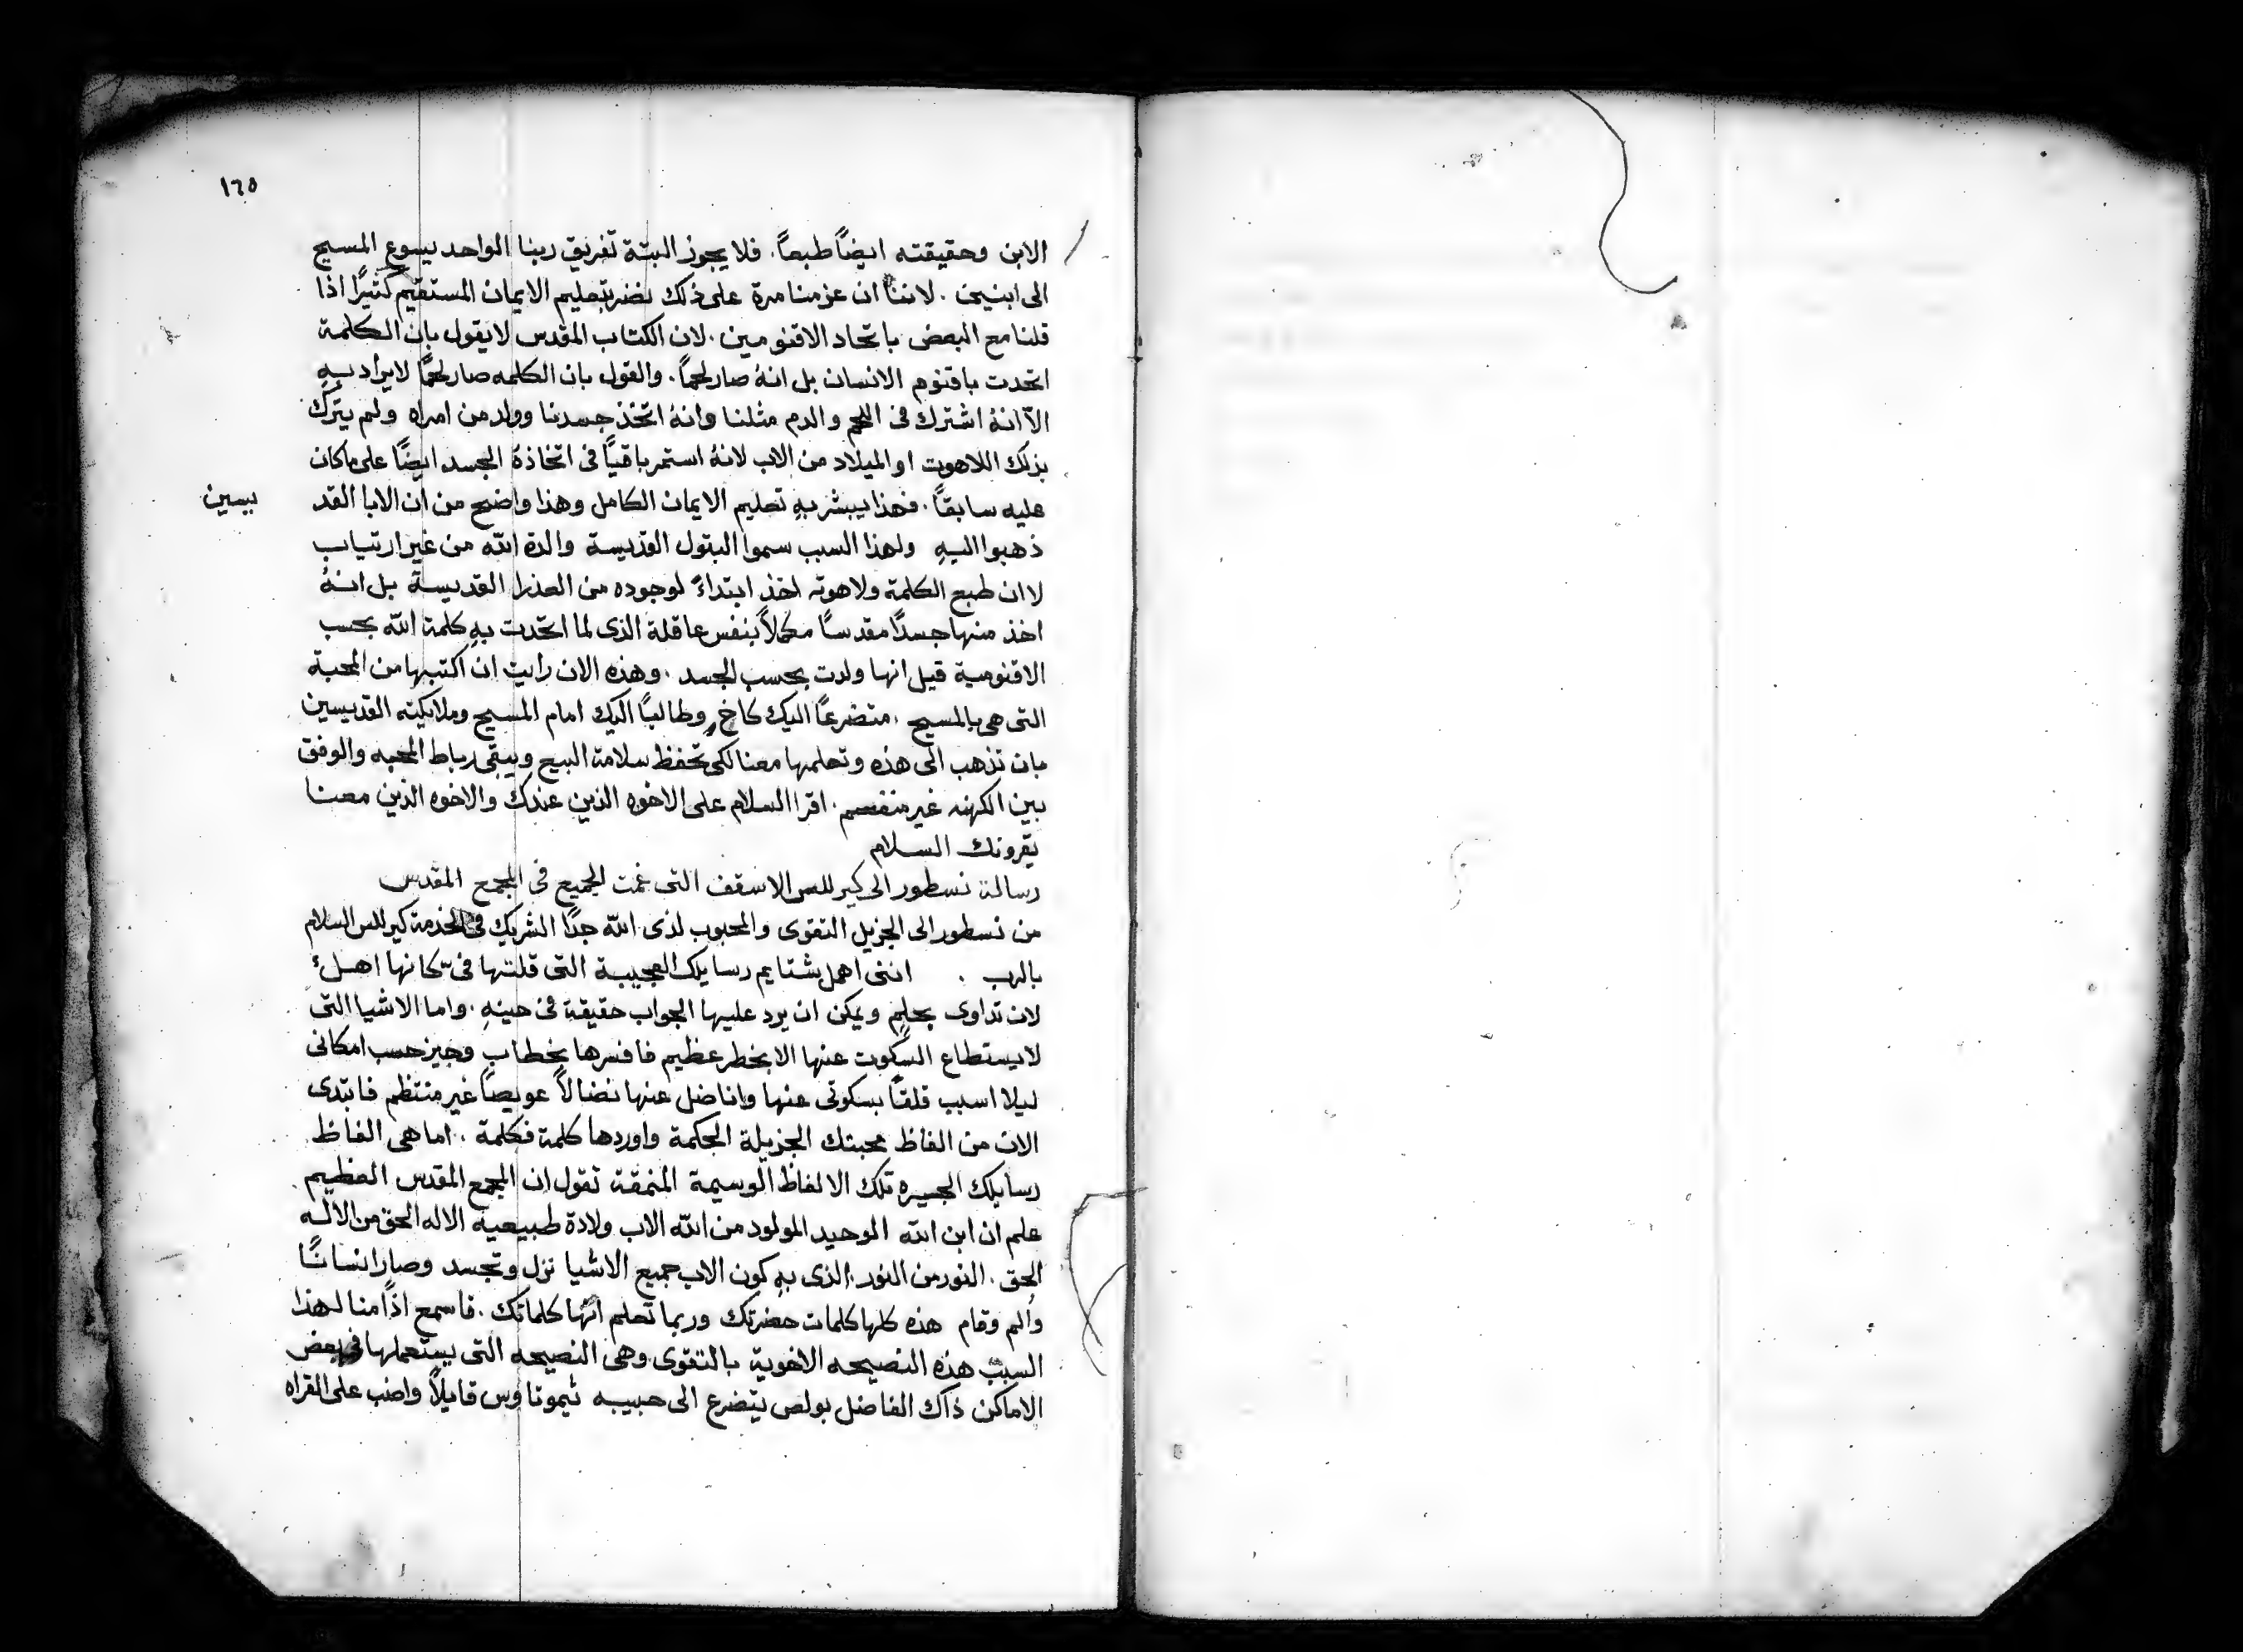 ١٦٥
الابن وحقيقته ايضاً طبعاً. فلا يجوز البتة تفريق ربنا الواحد يسوع المسيح
الى ابنين. لاننا ان عزمنا مرة على ذلك نضر بتعليم الايمان المستقيم كثيرًا اذا
قلنا مع البعض باتحاد الاقنومين. لان الكتاب المقدس لا يقول بان الكلمة
اتحدت باقنوم الانسان بل انهُ صار لحماً. والقول بان الكلمه صار لحمًا لا يراد بهِ
الّا انهُ اشترك في اللحم والدم مثلنا وانهُ اتخذ جسدنا وولد من امراه ولم يترك
بذلك اللاهوت او الميلاد من الاب لانهُ استمر باقيًا في اتخاذهُ الجسد ايضًا على ما كان
عليه سابقًا. فهذا يبشر بهِ تعليم الايمان الكامل وهذا واضح من ان الابا القد
يسين
ذهبوا اليهِ ولهذا السبب سموا البتول القديسة والدة الله من غير ارتياب
لا ان طبع الكلمة ولاهوته اخذ ابتداءً لوجوده من العذرا القديسة بل انهُ
اخذ منها جسدًا مقدسًا مكملاً بنفس عاقلة الذى لما اتحدت بهِ كلمة الله بحسب
الاقنومية قيل انها ولدت بحسب الجسد. وهذه الان رايت ان اكتبها من المحبة
التى هى بالمسيح. متضرعًا اليك كاخٍ وطالبًا اليك امام المسيح وملايكته القديسين
بان تذهب الى هذه وتعلمها معنا لكى تحفظ سلامة البيع ويبقى رباط المحبه والوفق
بين الكهنه غير منفصم. اقرا السلام على الاخوه الذين عندك والاخوه الذين معنا
يقرونك السلام
رسالة نسطور الى كيرللس الاسقف التى غمت الجميع في المجمع المقدس
من نسطور الى الجزيل التقوى والمحبوب لذى الله جدًا الشريك في الخدمة كيرللس السلام
بالرب. اننى اهمل شتايم رسايلك العجيبة التى قلتها فىّ كانها اهلٌ
لان تداوى بحلمٍ ويمكن ان يرد عليها الجواب حقيقة في حينهِ. واما الاشيا التى
لا يستطاع السكوت عنها الا بخطر عظيم فافسرها بخطابٍ وجيز حسب امكانى
ليلا اسبب قلقًا بسكوتى عنها واناضل عنها نضالاً عويصًا غير منتظم فابتدى
الان من الفاظ محبتك الجزيلة الحكمة واوردها كلمة فكلمة. اما هى الفاظ
رسايلك تلك الالفاظ الوسيمة المنمقة تقول ان المجمع المقدس العظيم
علم ان ابن الله الوحيد المولود من الله الاب ولادة طبيعية الاله الحق من الاله
الحق. النور من النور الذى بهِ كون الاب جميع الاشيا نزل وتجسد وصار انسانًا
والم وقام هذه كلها كلمات حضرتك وربما تعلم انها كلماتك. فاسمع اذًا منا لهذا
السبب هذه النصيحه الاخوية بالتقوى وهى النصيحه التى يستعملها في بعض
الاماكن ذاك الفاضل بولص يتضرع الى حبيبه تيموتاوس قايلاً واضب على القراه